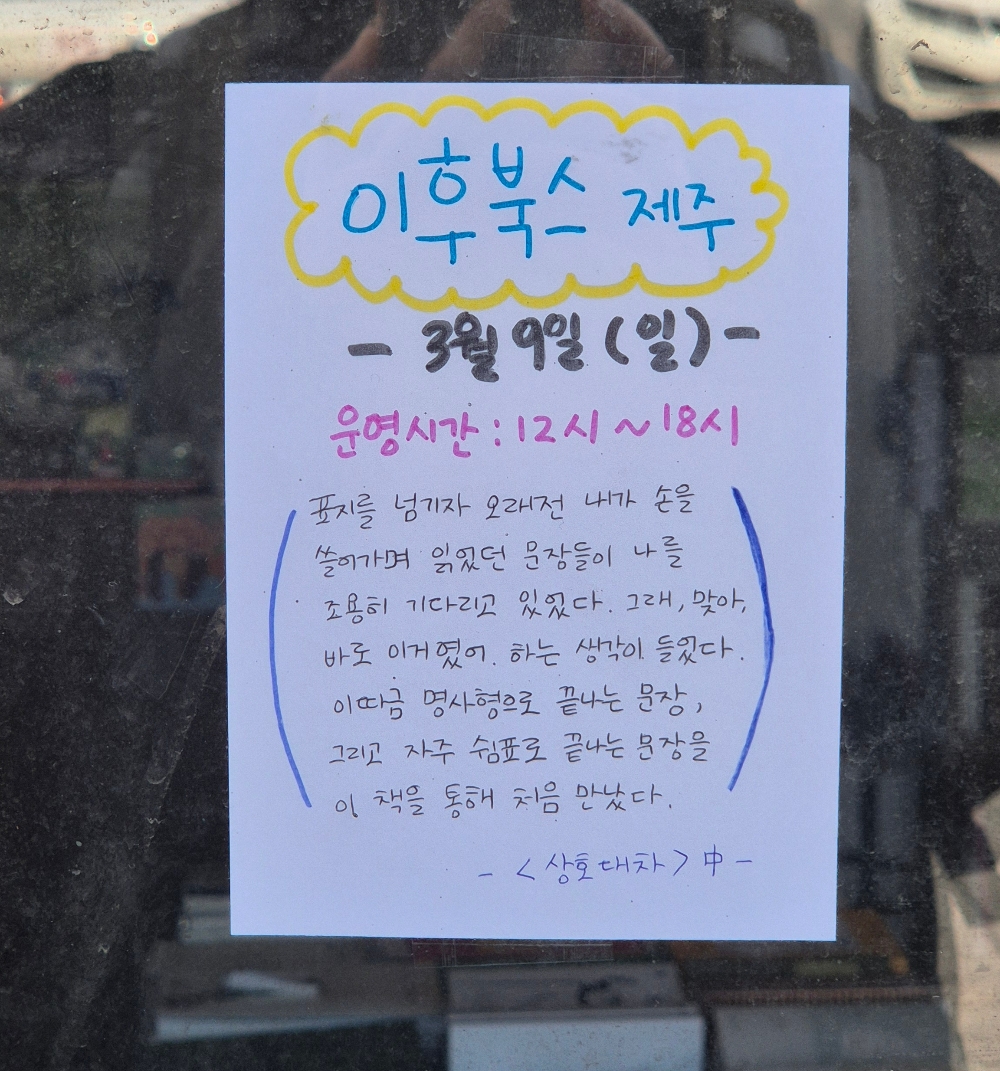 이후북스 제주
- 3월 9일 (일) -
운영시간 : 12시 ~ 18시
표지를 넘기자 오래전 내가 손을
쓸어가며 읽었던 문장들이 나를
조용히 기다리고 있었다. 그래, 맞아,
바로 이거였어. 하는 생각이 들었다.
이따금 명사형으로 끝나는 문장,
그리고 자주 쉼표로 끝나는 문장을
이 책을 통해 처음 만났다.
- <상호대차> 中 -